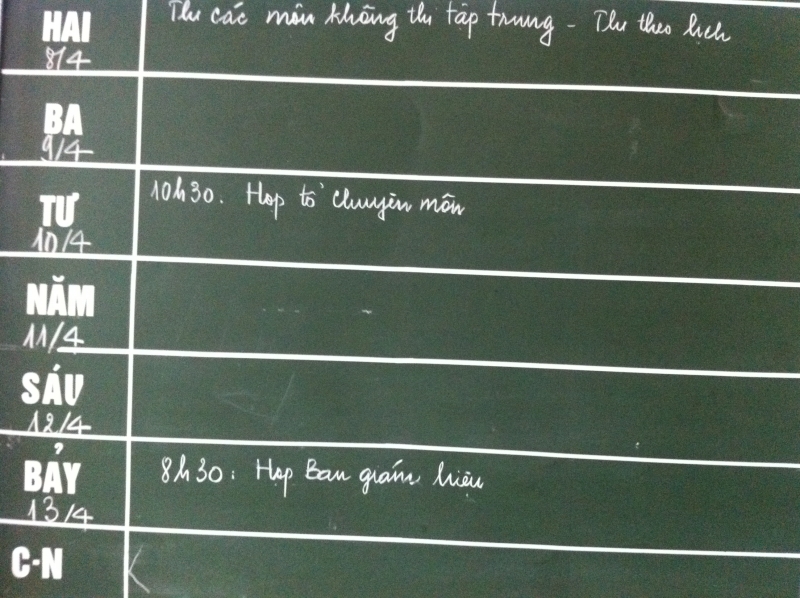 HAI
8/4
Thi các môn không thi tập trung - Thi theo lịch
BA
9/4
TƯ
10/4
10h30. Họp tổ chuyên môn
NĂM
11/4
SÁU
12/4
BẢY
13/4
8h30: Họp Ban giám hiệu
C-N